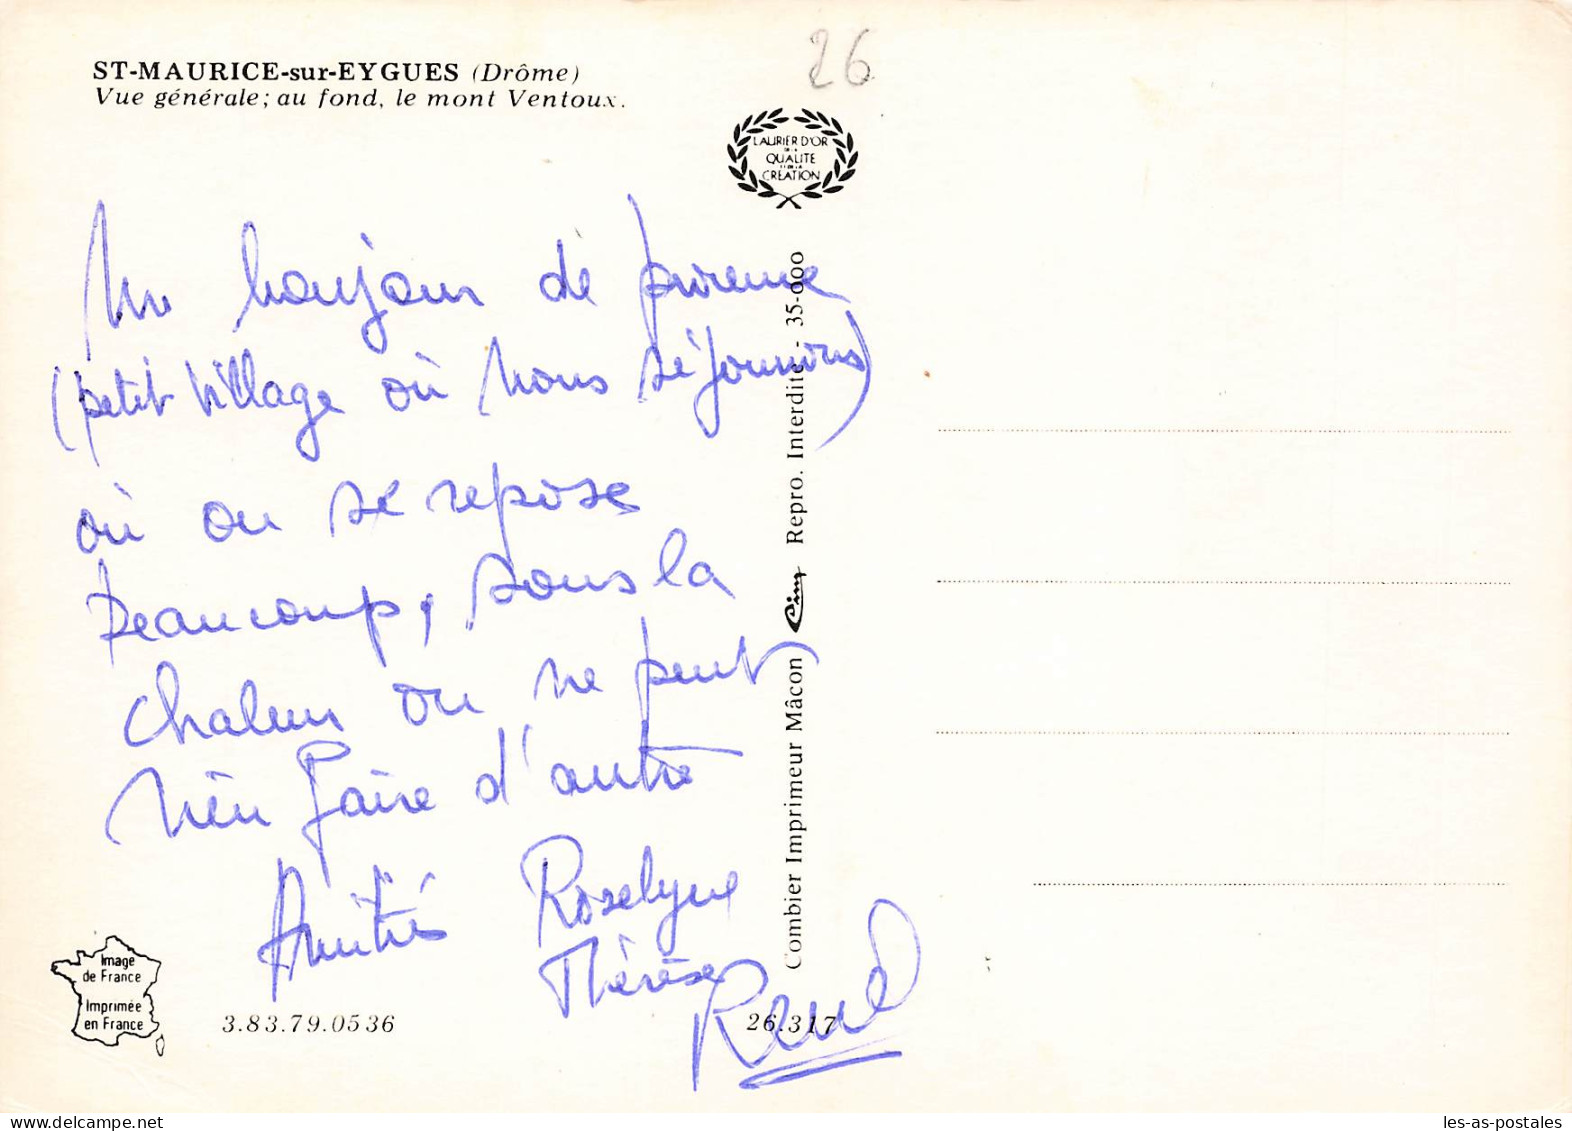 ST-MAURICE-sur-EYGUES (Drôme)
Vue générale; au fond, le mont Ventoux.
26
LAURIER D'OR
DE LA
QUALITE
ET DE LA
CRÉATION
Un bonjour de
(petit village où nous séjournons)
où on se repose
beaucoup, sous la
chaleur on ne peut
rien faire d'autre
Amitiés Roselyne
Thérèse
René
Combier Imprimeur Mâcon Cim Repro. Interdite - 35-000
Image
de France
Imprimée
en France
3.83.79.0536
26.317
les-as-postales